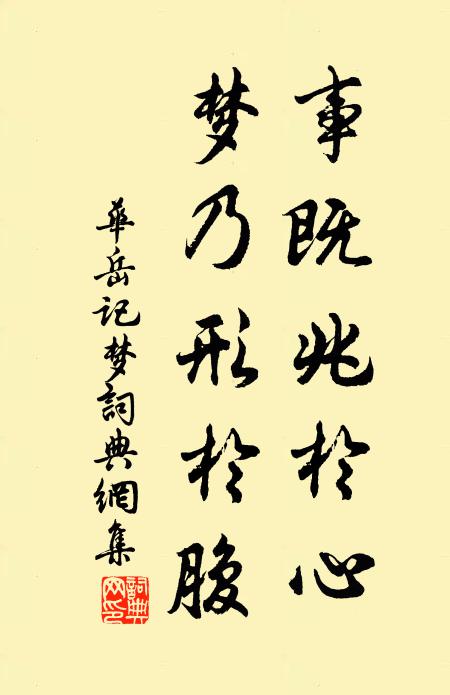 事既兆于心
梦乃形于腹
华岳记梦詞典網集
詞典